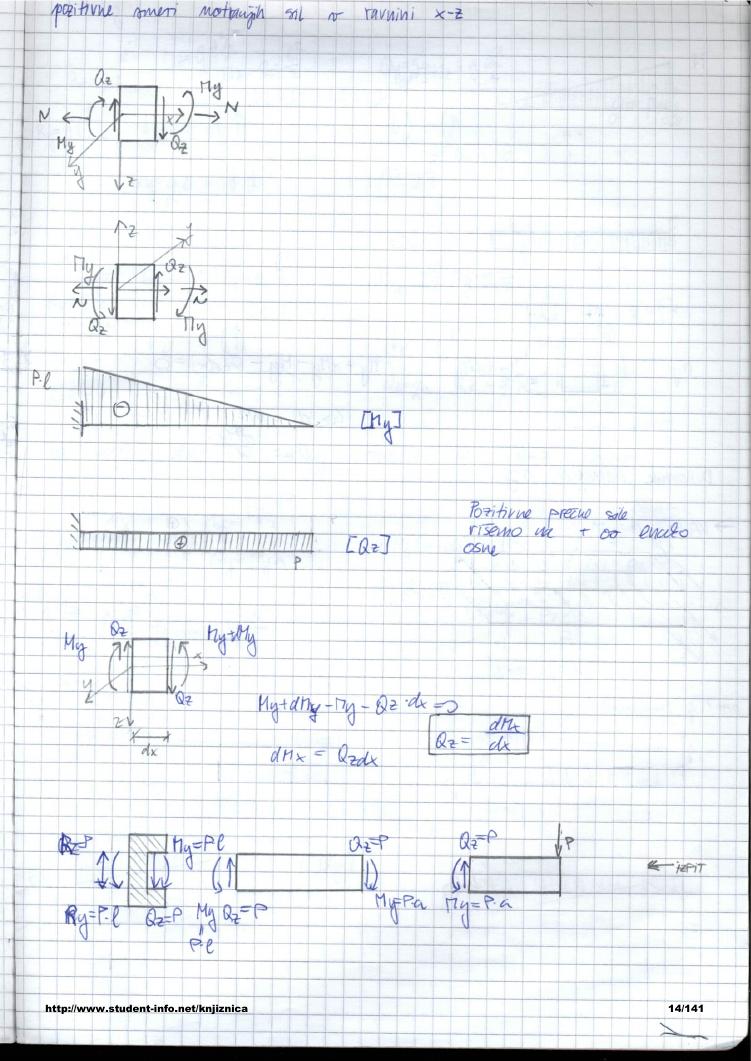 pozitivne smeri notranjih sil v ravnini x-z
Qz
My
N
N
x
My
Qz
y
z
z
y
My
Qz
N
N
Qz
My
P·l
⊖
[My]
Pozitivne prečne sile
rišemo na + os enako
osne
⊕
[Qz]
P
Qz
My
My+dMy
x
y
Qz
z
dx
My+dMy-My-Qz·dx=0
Qz = dMx
dx
dMx = Qzdx
My=P·l
Qz=P
Qz=P
P
← izpit
Ry=P·l
Qz=P
My
Qz=P
My=P·a
My=P·a
P·l
http://www.student-info.net/knjiznica
14/141